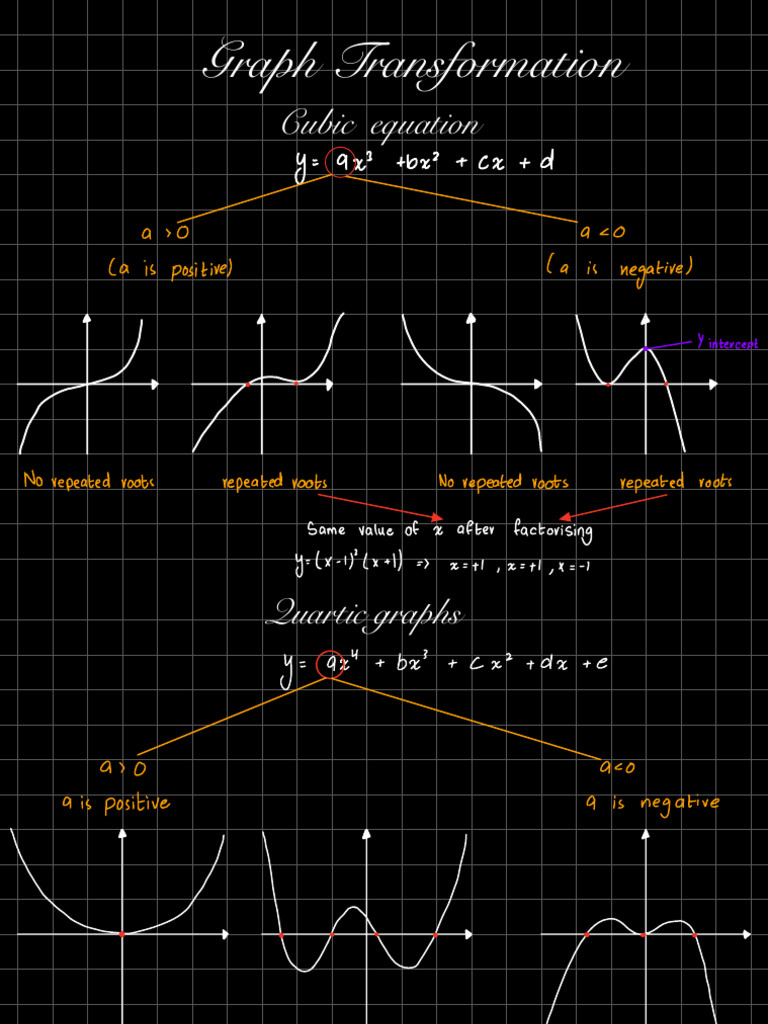 Graph Transformation
Cubic equation
y = ax³ + bx² + cx + d
a > 0
a < 0
(a is positive)
(a is negative)
y intercept
No repeated roots
repeated roots
No repeated roots
repeated roots
Same value of x after factorising
y=(x-1)²(x+1) => x=+1, x=+1, x=-1
Quartic graphs
y = ax⁴ + bx³ + cx² + dx + e
a > 0
a < 0
a is positive
a is negative